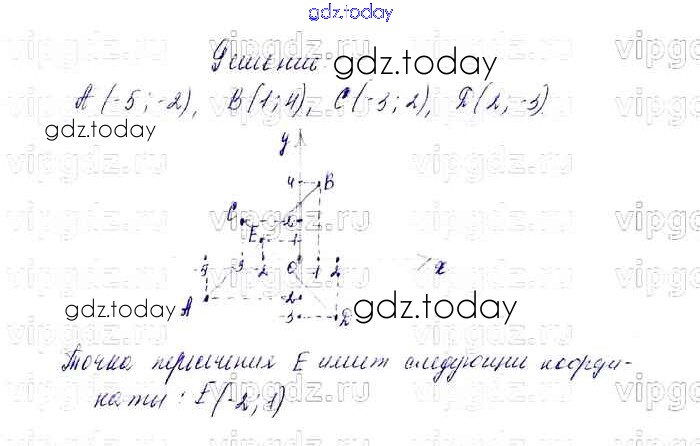 gdz.today
Решение
gdz.today
A(-5;-2), B(1;4), C(-3;2), D(2;-3)
gdz.today
y
4 B
C 2
E 1
-5 -3 -2 0 1 2 x
A -2
-3 D
gdz.today
gdz.today
Точка пересечения E имеет следующие коорди-
наты: E(-2;1)
vipgdz.ru